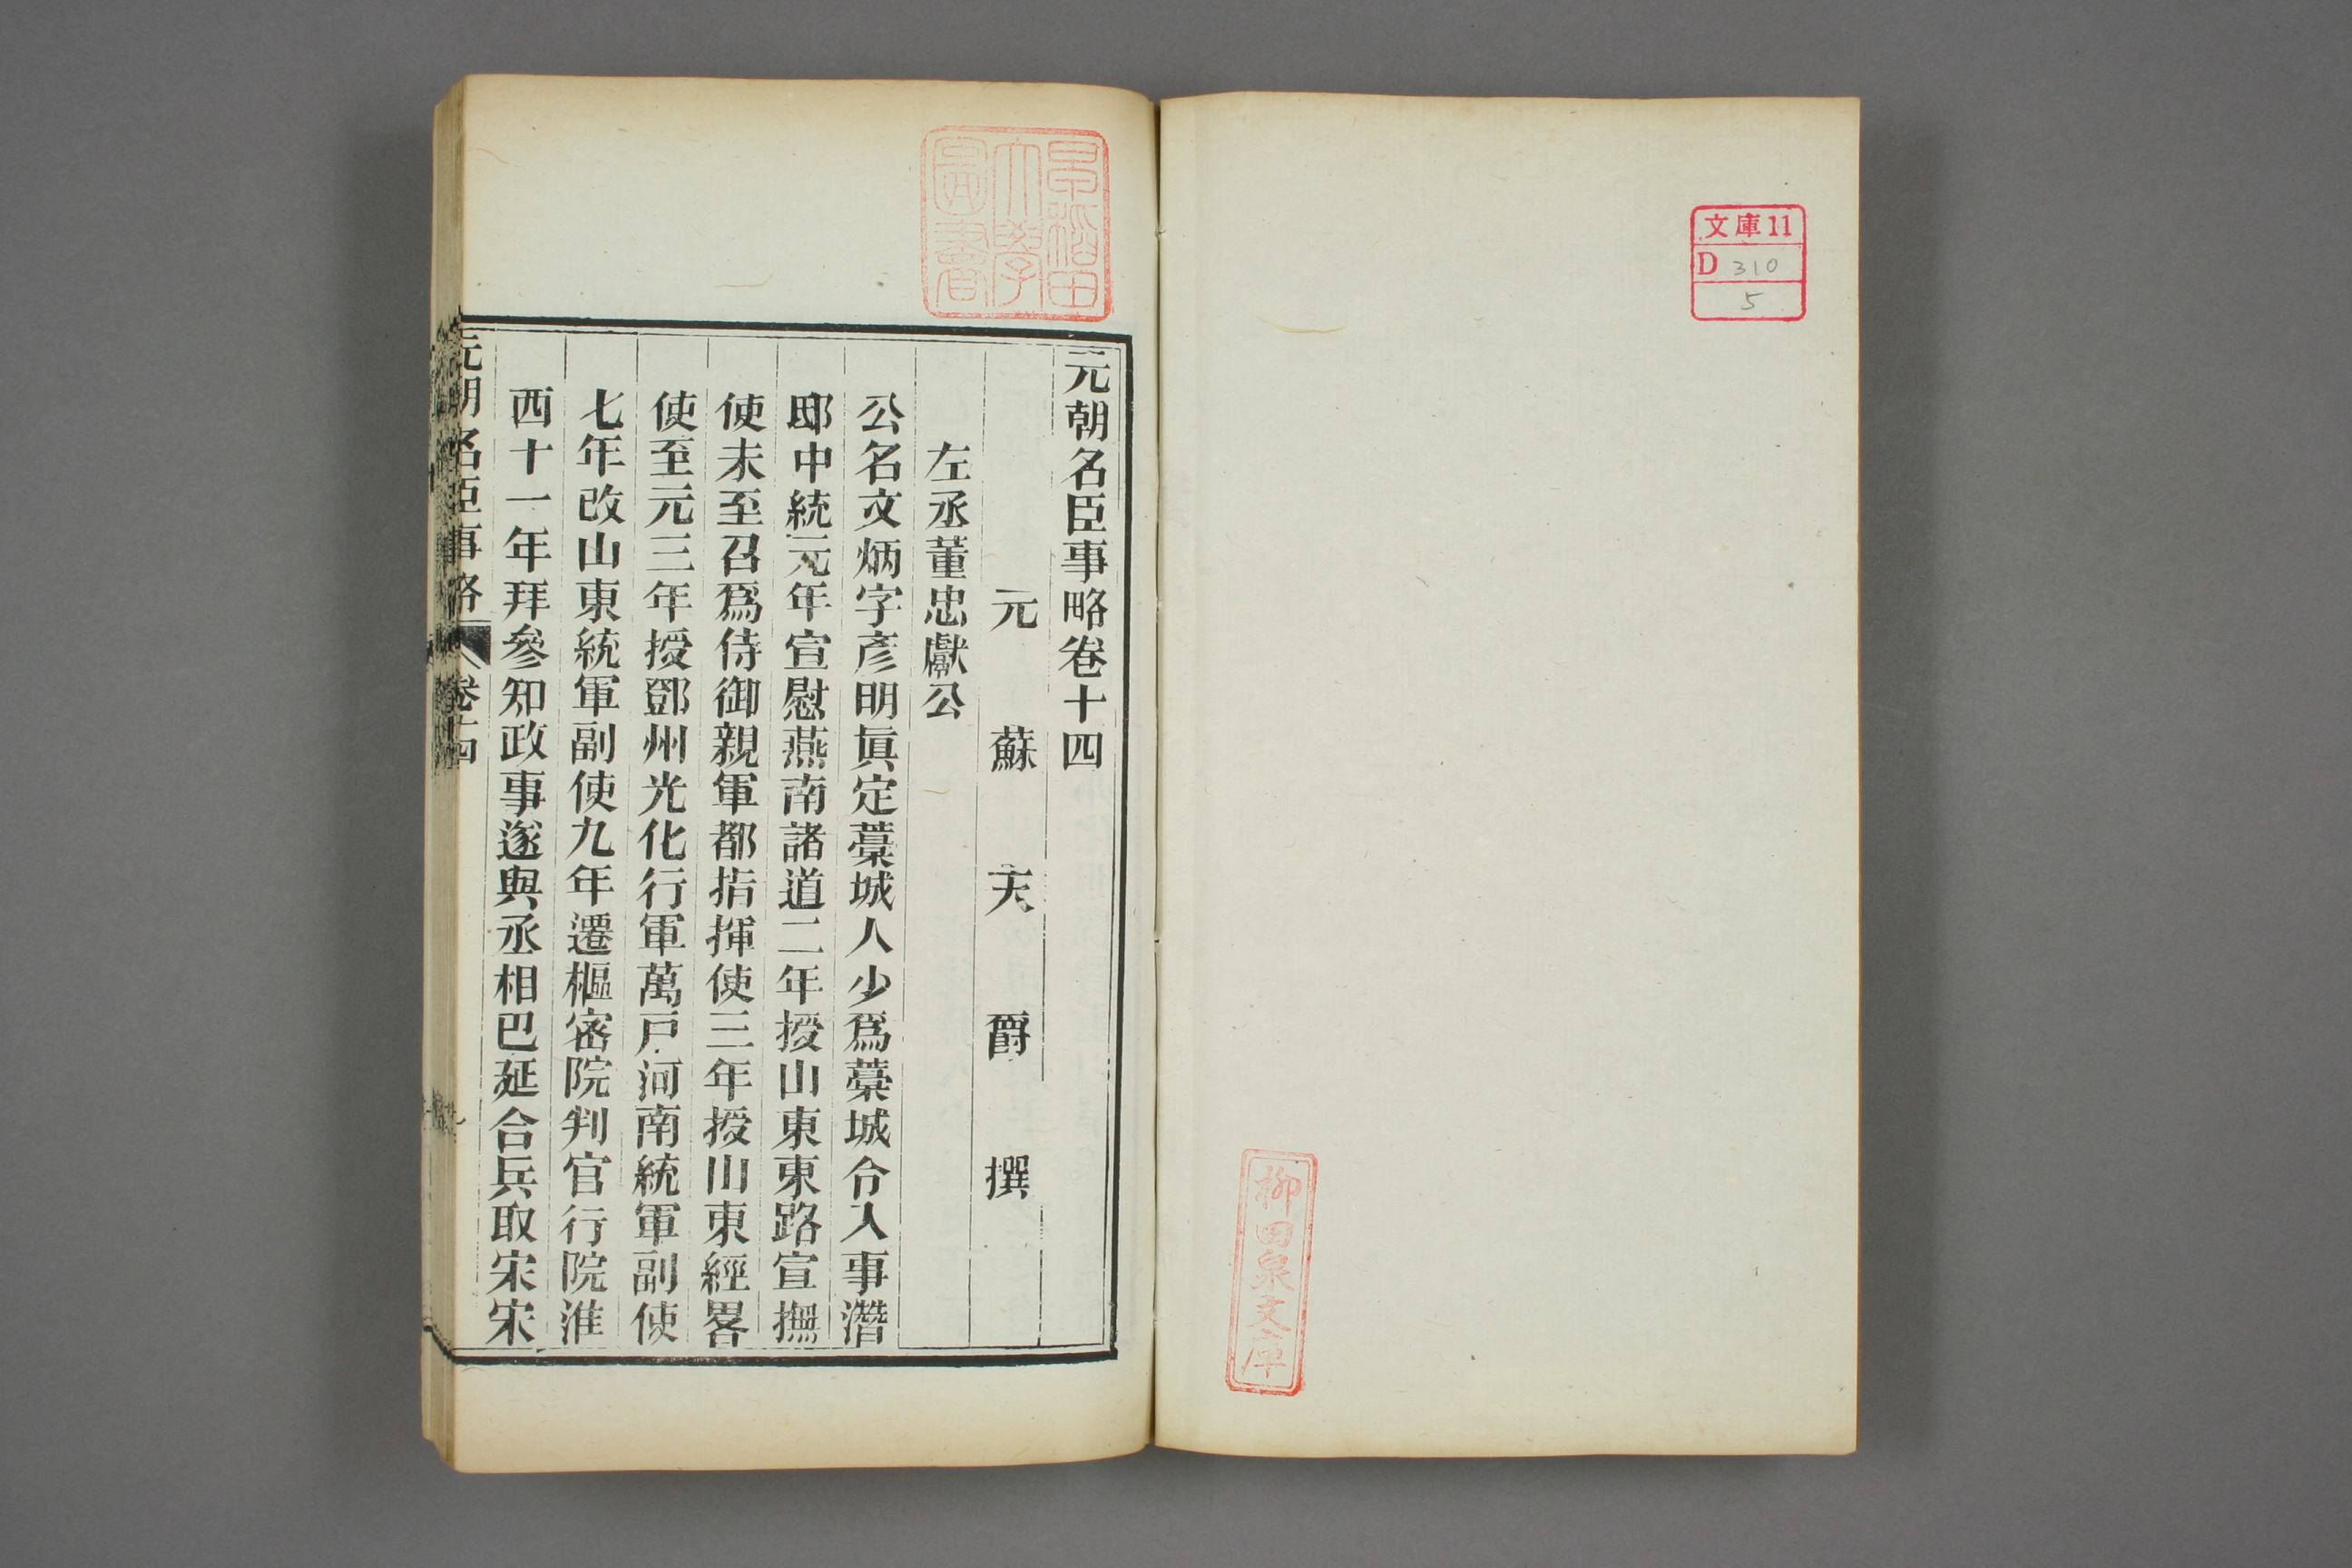 文庫11
D 310
5
柳田泉文庫
早稲田
大學
圖書
元朝名臣事略卷十四
元蘇天爵撰
左丞董忠獻公
公名文炳字彥明眞定藁城人少爲藁城令入事潛
邸中統元年宣慰燕南諸道二年授山東東路宣撫
使未至召爲侍御親軍都指揮使三年授山東經畧
使至元三年授鄧州光化行軍萬戸河南統軍副使
七年改山東統軍副使九年遷樞密院判官行院淮
西十一年拜參知政事遂與丞相巴延合兵取宋宋
元朝名臣事略 卷十四